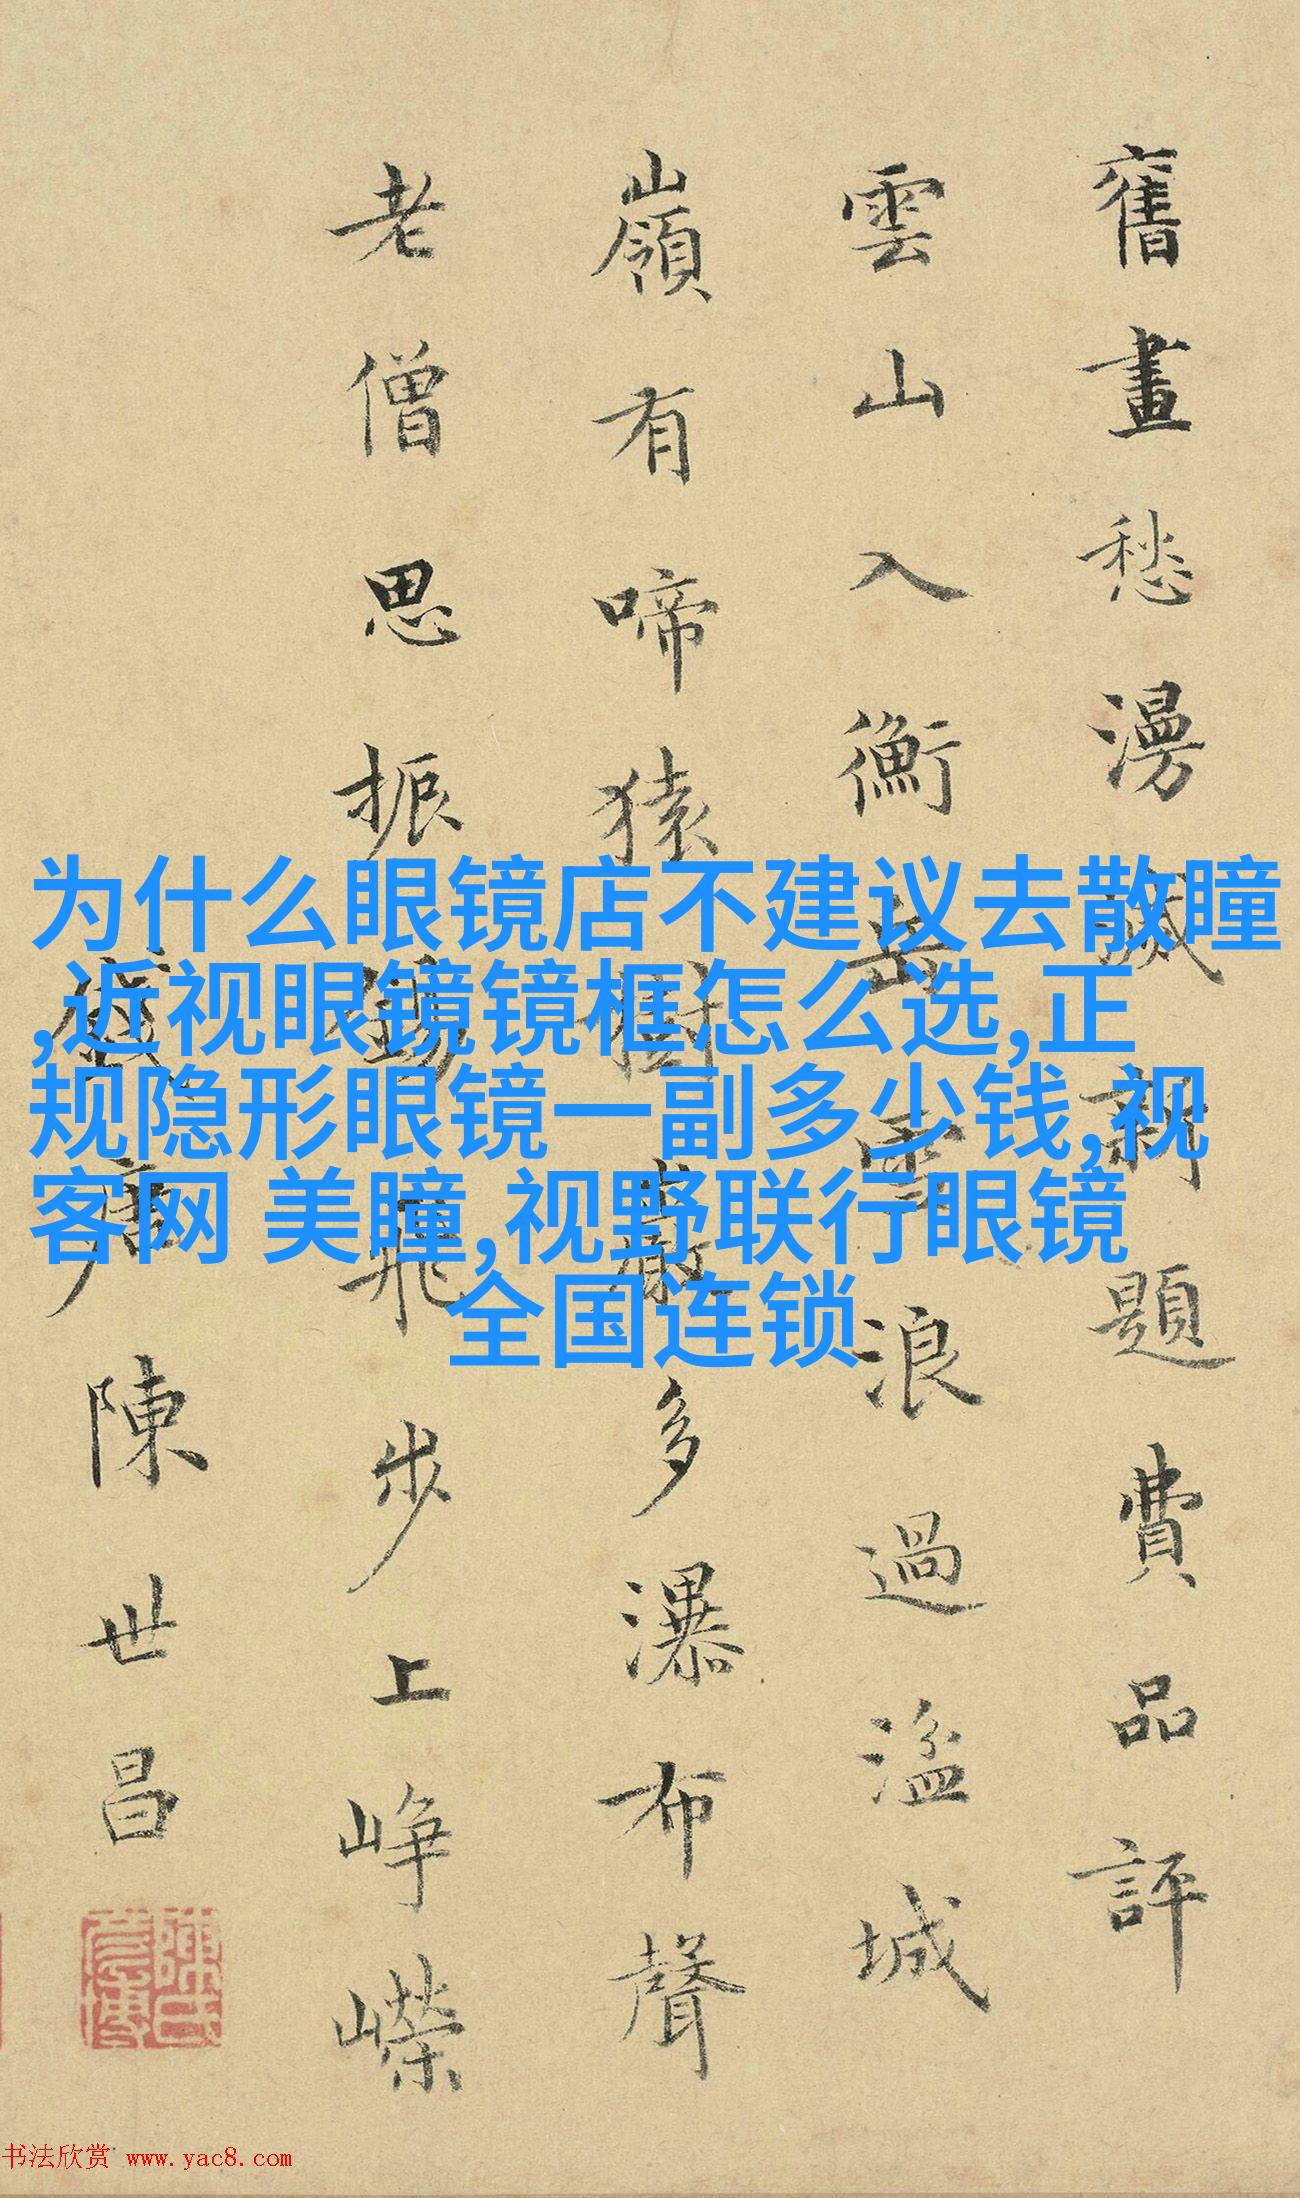 舊畫愁漫滅新題費品評
雲山入衡岳雪浪過湓城
嶺有啼猿樹巖多瀑布聲
老僧思振錫飛步上崢嶸
唐陳世昌
为什么眼镜店不建议去散瞳
,近视眼镜镜框怎么选,正
规隐形眼镜一副多少钱,视
客网 美瞳,视野联行眼镜
全国连锁
书法欣赏 www.yac8.com